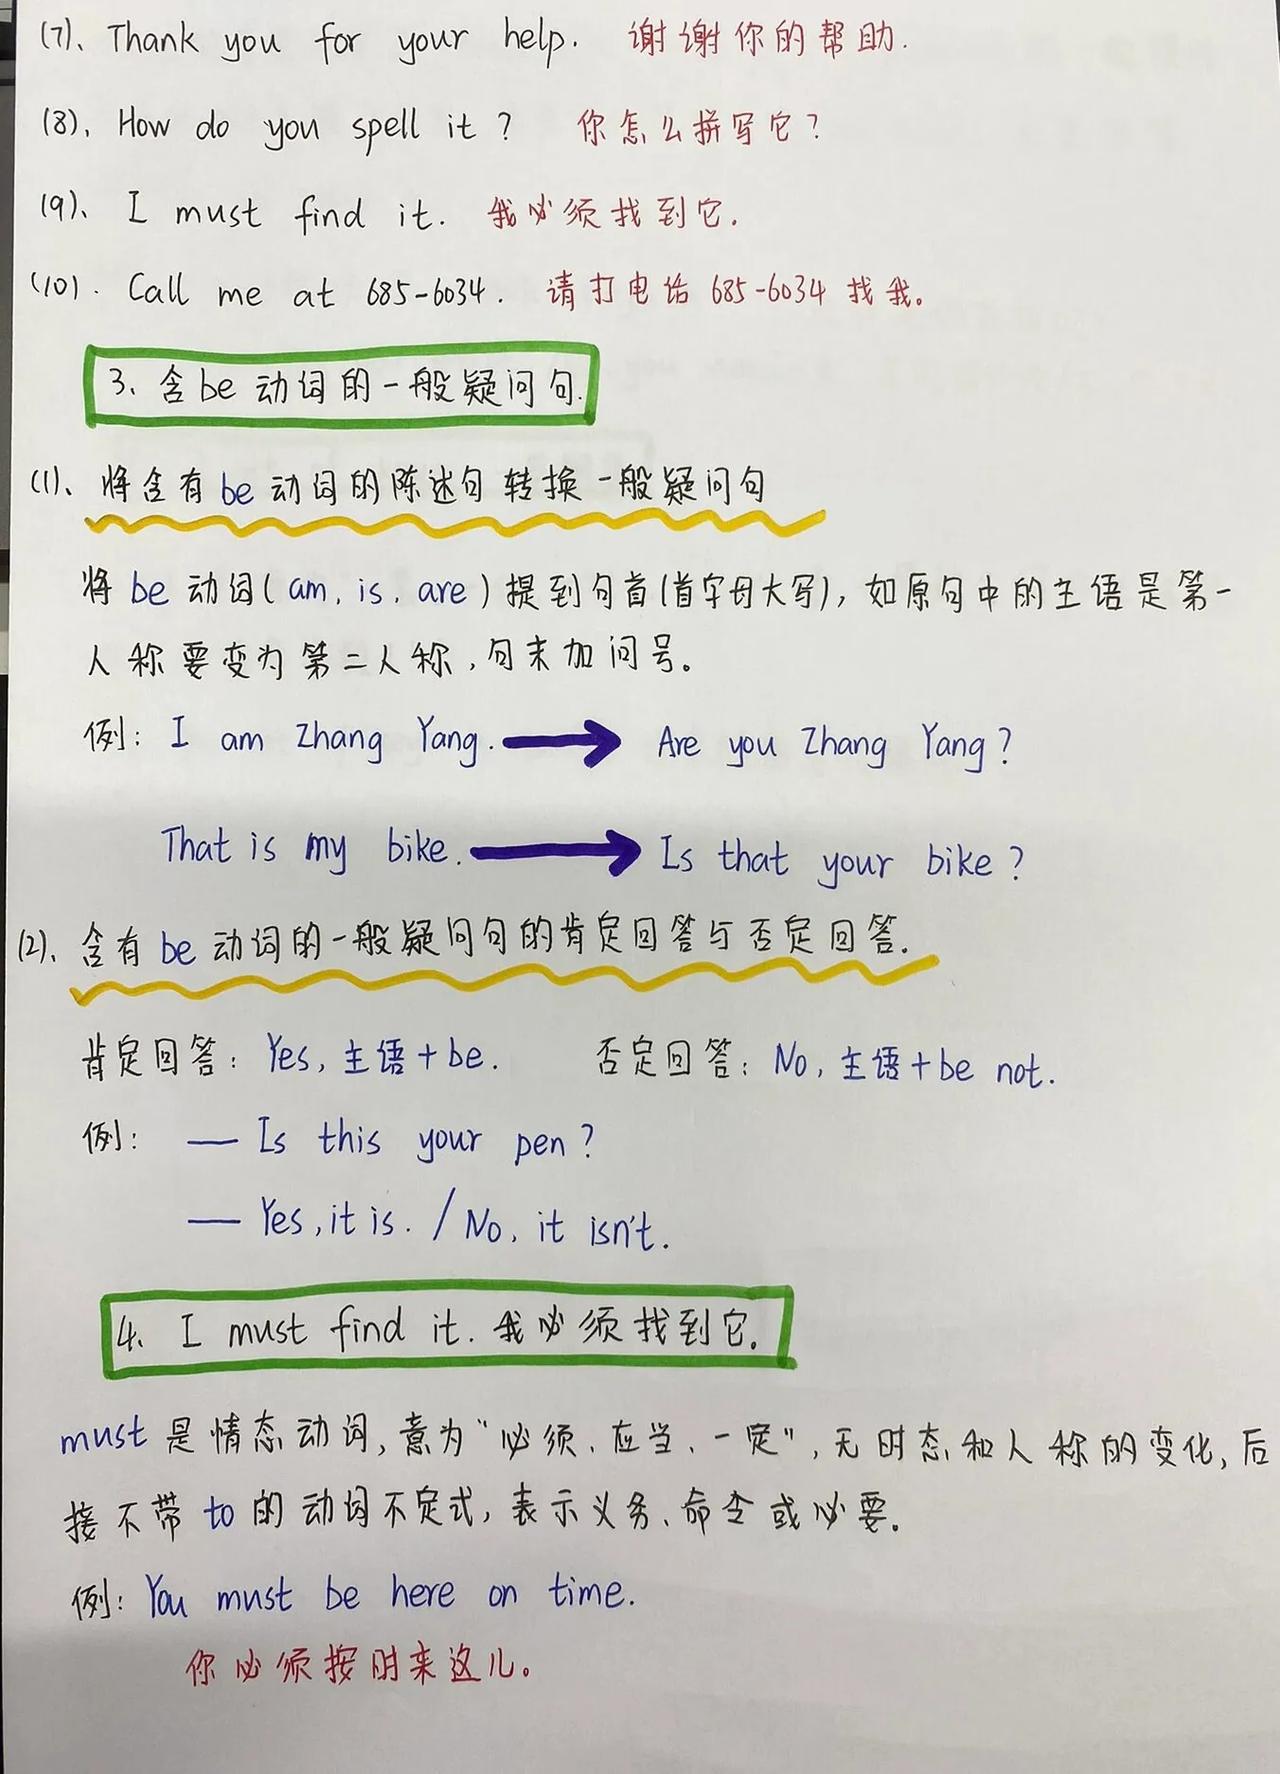 (7)、Thank you for your help. 谢谢你的帮助.
(8)、How do you spell it? 你怎么拼写它?
(9)、I must find it. 我必须找到它.
(10). Call me at 685-6034. 请打电话 685-6034 找我。
3、含be动词的一般疑问句.
(1)、将含有be动词的陈述句转换一般疑问句
将be动词(am, is, are)提到句首(首字母大写), 如原句中的主语是第一
人称要变为第二人称,句末加问号。
例: I am Zhang Yang. → Are you Zhang Yang?
That is my bike. → Is that your bike?
(2)、含有be动词的一般疑问句的肯定回答与否定回答.
肯定回答: Yes, 主语+be. 否定回答: No, 主语+be not.
例: — Is this your pen?
— Yes, it is. / No, it isn't.
4、I must find it. 我必须找到它.
must是情态动词, 意为"必须、应当、一定", 无时态和人称的变化, 后
接不带to的动词不定式, 表示义务、命令或必要。
例: You must be here on time.
你必须按时来这儿。